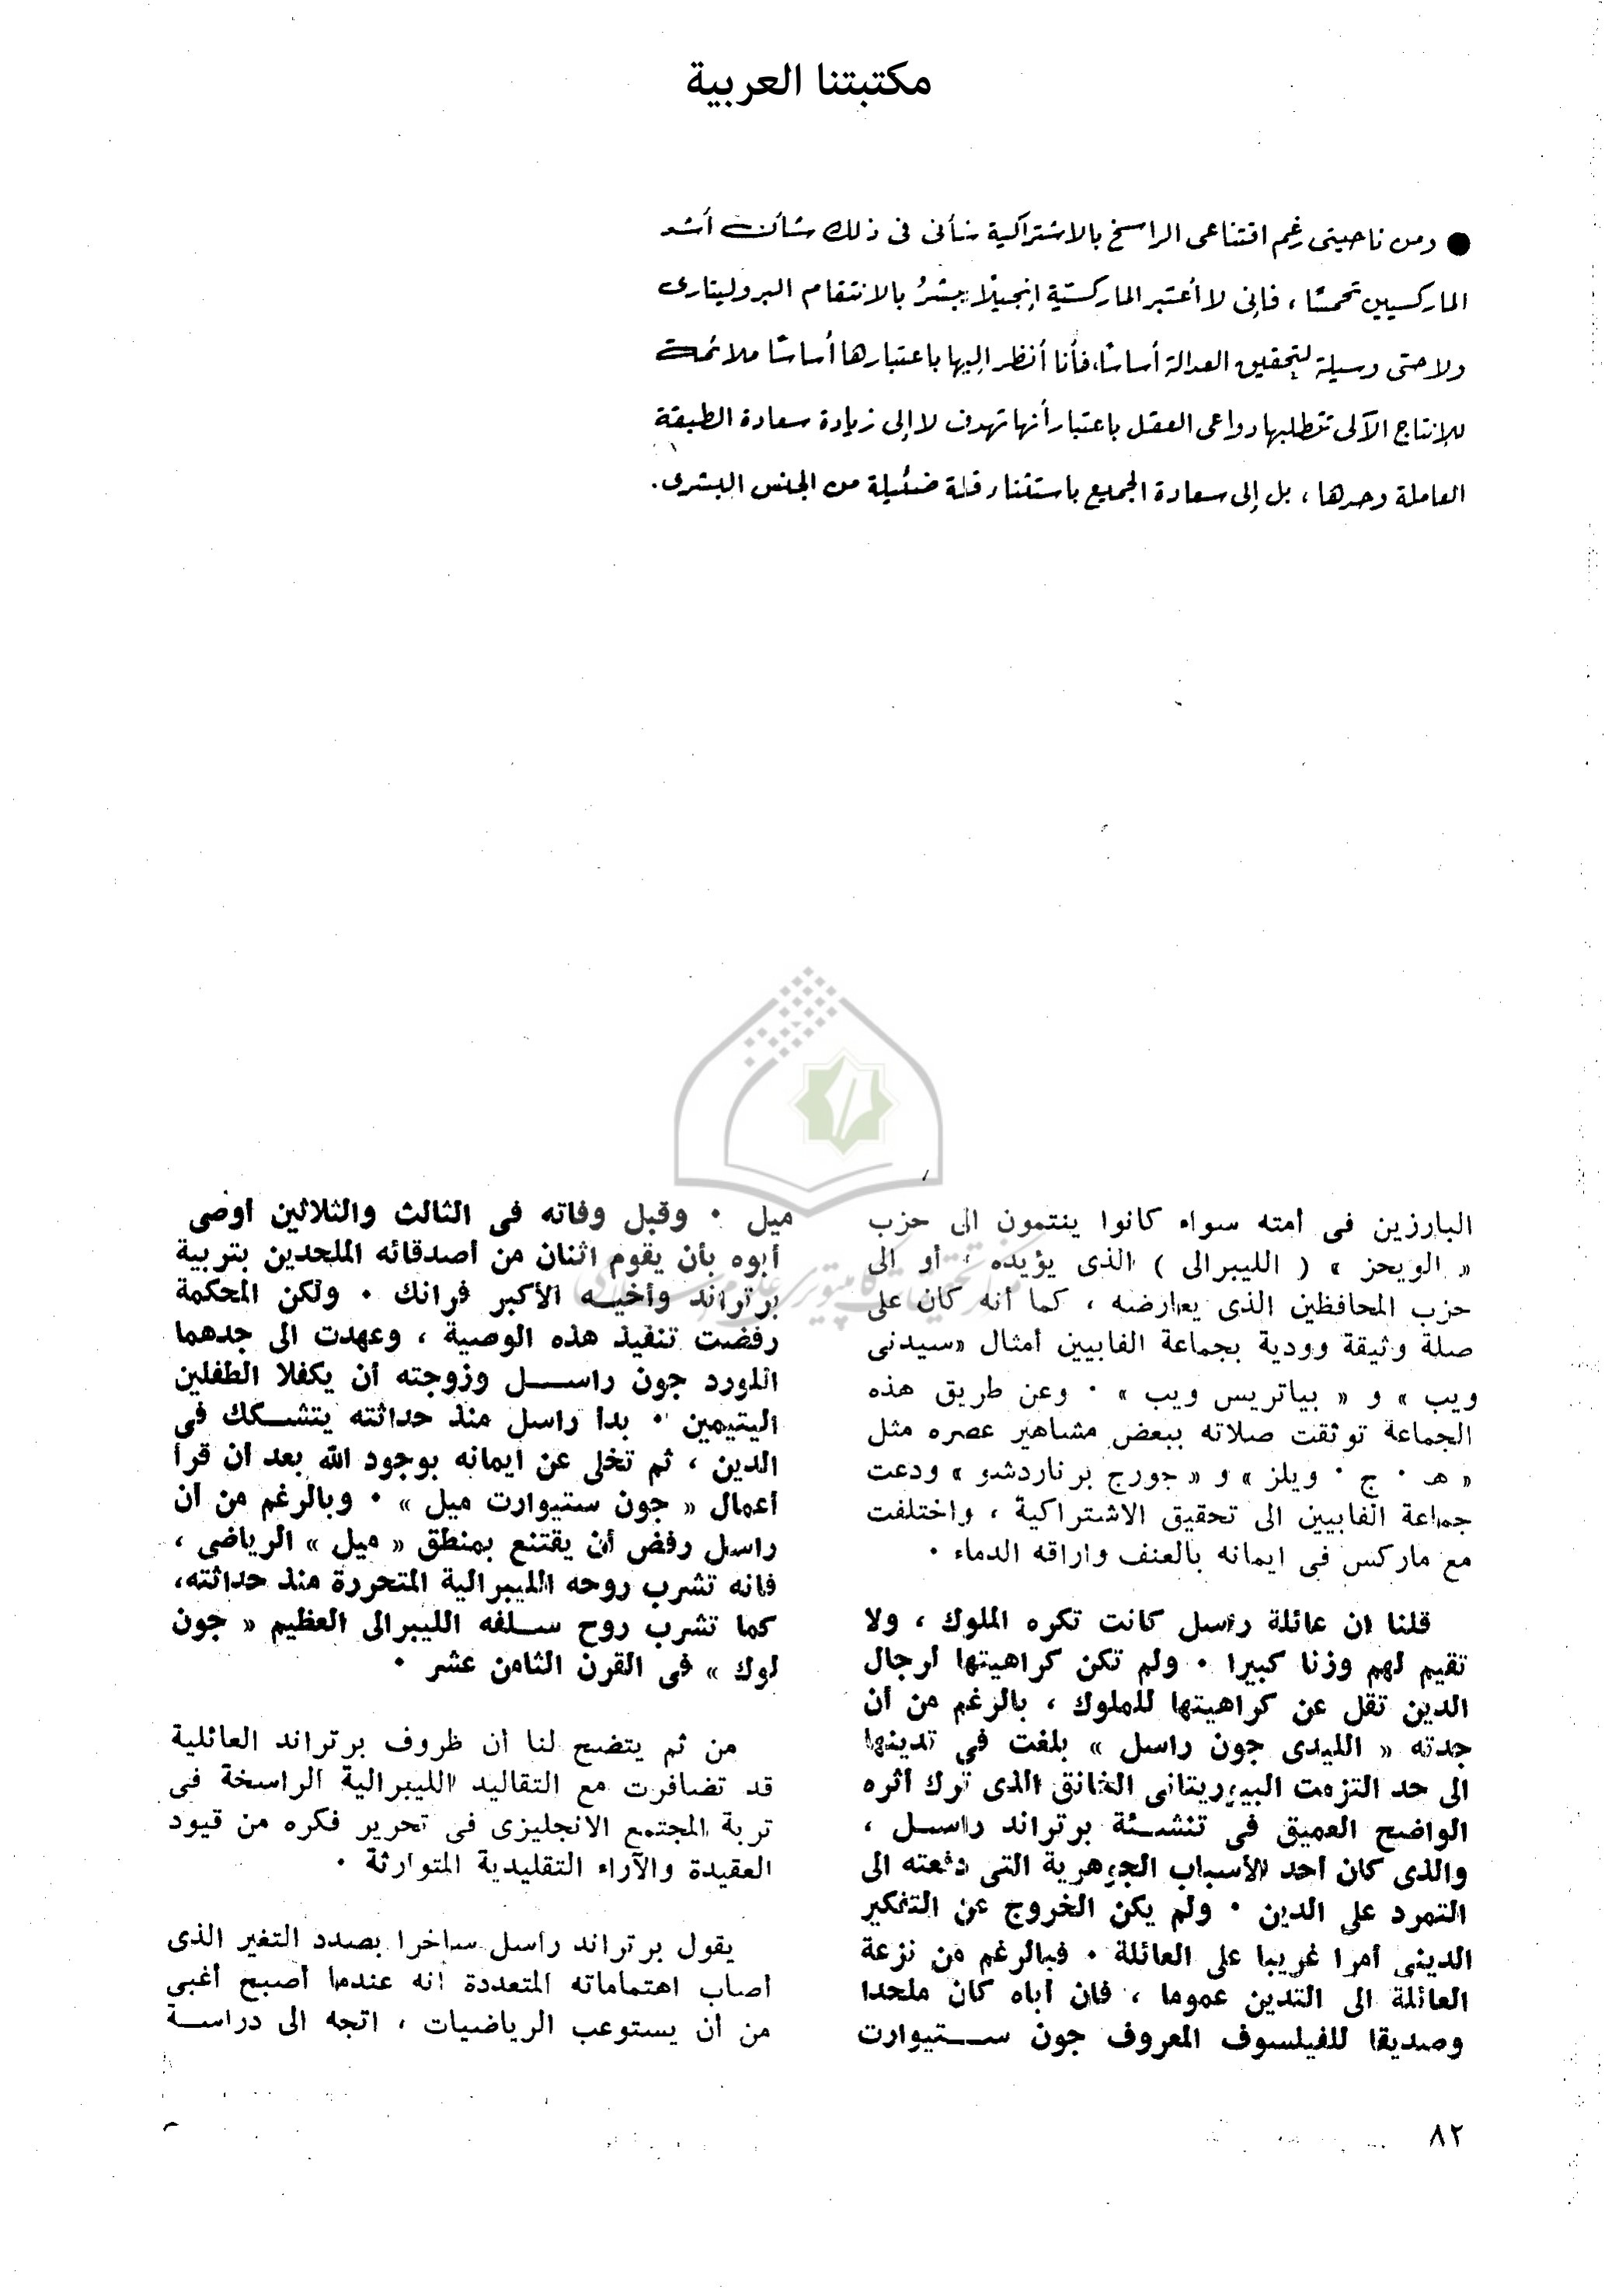 مكتبتنا العربية
● ومن ناحيتى رغم اقتناعى الراسخ بالاشتراكية شأنى فى ذلك شأن أشد
الماركسيين تحمسًا ، فإنى لا أعتبر الماركسية إنجيلًا يبشرُ بالانتقام البروليتارى
ولا حتى وسيلة لتحقيق العدالة أساسًا، فأنا أنظر إليها باعتبارها أساسًا ملائمة
للإنتاج الآلى تتطلبها دواعى العقل باعتبار أنها تهدف لا إلى زيادة سعادة الطبقة
العاملة وحدها ، بل إلى سعادة الجميع باستثناء قلة ضئيلة من الجنس البشرى.
البارزين فى أمته سواء كانوا ينتمون الى حزب
« الويحز » ( الليبرالى ) الذى يؤيده ، أو الى
حزب المحافظين الذى يعارضه ، كما أنه كان على
صلة وثيقة وودية بجماعة الفابيين أمثال «سيدنى
ويب » و « بياتريس ويب » ٠ وعن طريق هذه
الجماعة توثقت صلاته ببعض مشاهير عصره مثل
« هـ ٠ ج ٠ ويلز » و « جورج برناردشو » ودعت
جماعة الفابيين الى تحقيق الاشتراكية ، واختلفت
مع ماركس فى ايمانه بالعنف واراقه الدماء ٠
قلنا ان عائلة راسل كانت تكره الملوك ، ولا
تقيم لهم وزنا كبيرا ٠ ولم تكن كراهيتها لرجال
الدين تقل عن كراهيتها للملوك ، بالرغم من أن
جدته « الليدى جون راسل » بلغت فى تدينها
الى حد التزمت البيوريتانى الخانق الذى ترك أثره
الواضح العميق فى تنشئة برتراند راسل ،
والذى كان أحد الأسباب الجوهرية التى دفعته الى
التمرد على الدين ٠ ولم يكن الخروج عن التفكير
الدينى أمرا غريبا على العائلة ٠ فبالرغم من نزعة
العائلة الى التدين عموما ، فان أباه كان ملحدا
وصديقا للفيلسوف المعروف جون ستيوارت
ميل ٠ وقبل وفاته فى الثالث والثلاثين أوصى
أبوه بأن يقوم اثنان من أصدقائه الملحدين بتربية
برتراند وأخيه الأكبر فرانك ٠ ولكن المحكمة
رفضت تنفيذ هذه الوصية ، وعهدت الى جدهما
اللورد جون راسل وزوجته أن يكفلا الطفلين
اليتيمين ٠ بدأ راسل منذ حداثته يتشكك فى
الدين ، ثم تخلى عن ايمانه بوجود الله بعد أن قرأ
أعمال « جون ستيوارت ميل » ٠ وبالرغم من أن
راسل رفض أن يقتنع بمنطق « ميل » الرياضى ،
فانه تشرب روحه الليبرالية المتحررة منذ حداثته،
كما تشرب روح سلفه الليبرالى العظيم « جون
لوك » فى القرن الثامن عشر ٠
من ثم يتضح لنا أن ظروف برتراند العائلية
قد تضافرت مع التقاليد الليبرالية الراسخة فى
تربة المجتمع الانجليزى فى تحرير فكره من قيود
العقيدة والآراء التقليدية المتوارثة ٠
يقول برتراند راسل ساخرا بصدد التغير الذى
أصاب اهتماماته المتعددة أنه عندما أصبح أغبى
من أن يستوعب الرياضيات ، اتجه الى دراسة
٨٢